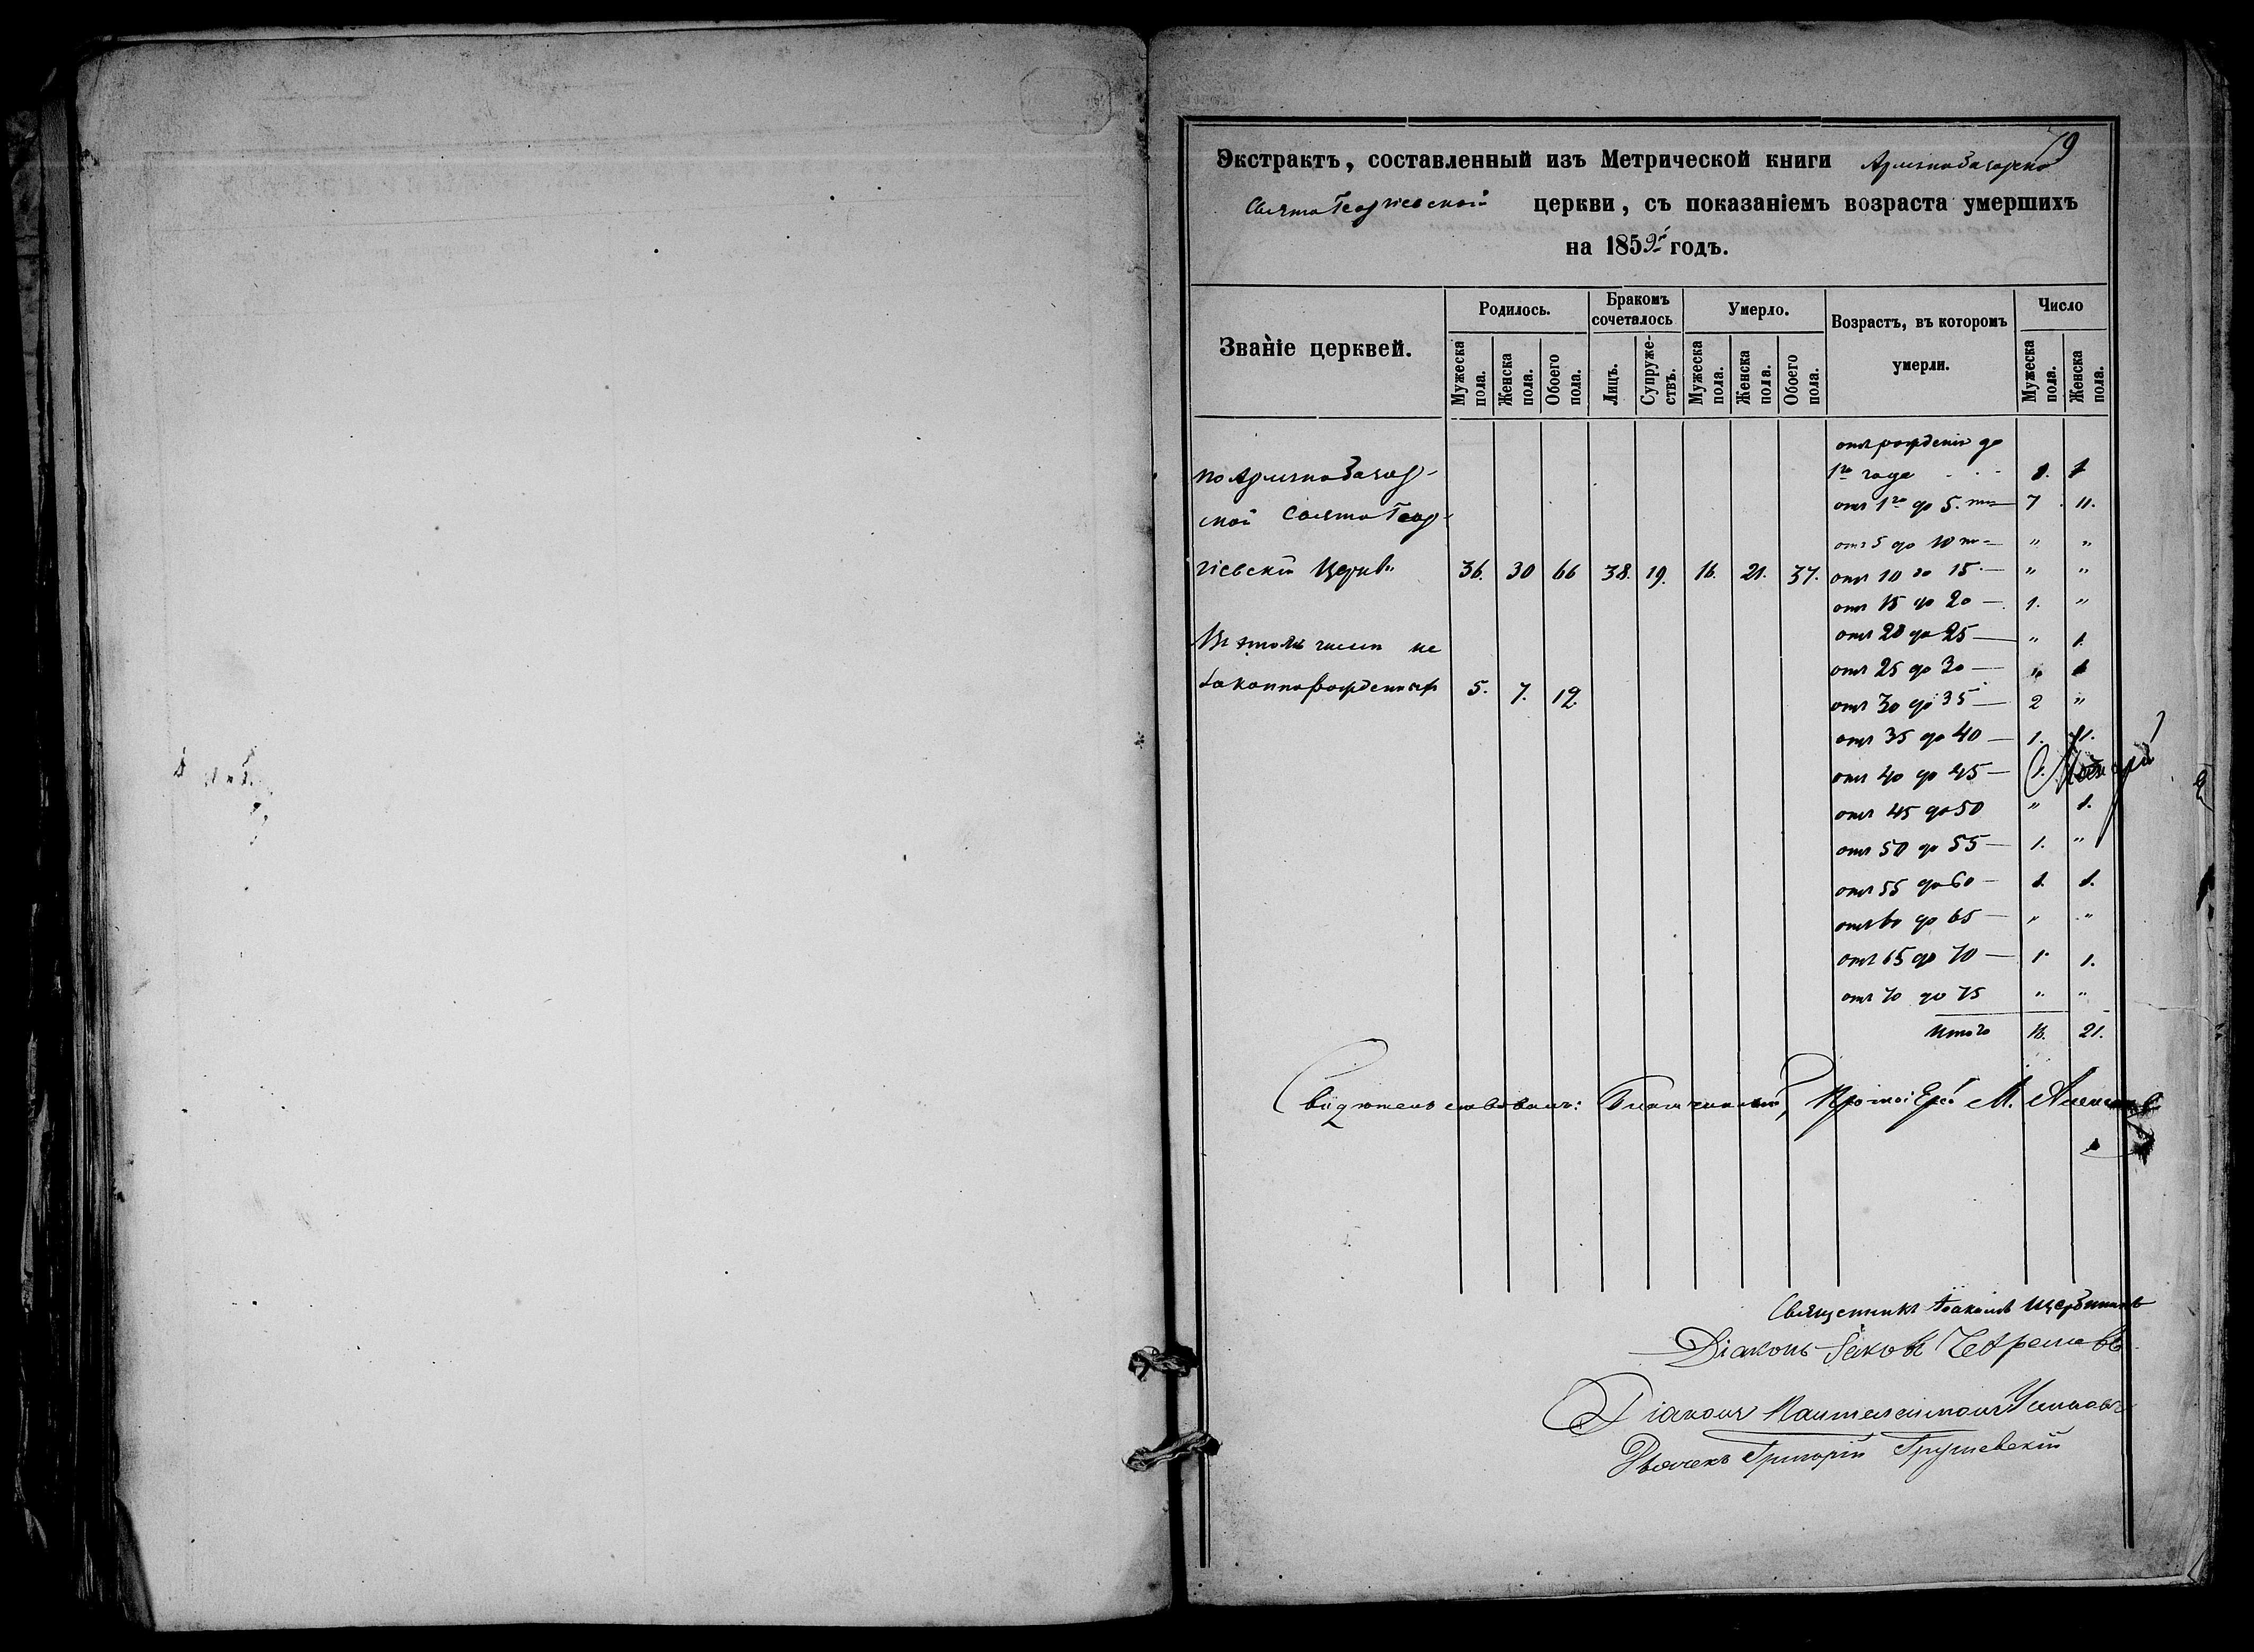 79
Экстрактъ, составленный изъ Метрической книги Армянобазарско
Свято Георгіевской церкви, съ показаніемъ возраста умершихъ
на 1859й годъ.
Званіе церквей.
Родилось.
Бракомъ сочеталось
Умерло.
Возрастъ, въ которомъ умерли.
Число
Мужеска пола.
Женска пола.
Обоего пола.
Лицъ.
Супруже-ствъ.
Мужеска пола.
Женска пола.
Обоего пола.
Мужеска пола.
Женска пола.
отъ рожденія до
1го года 1. 1
от 1го до 5. 7 11.
отъ 5 до 10 " "
по Армянобазар-
ской Свято Геор-
гіевской Церкви 36. 30 66 38. 19. 16. 21. 37.
отъ 10 до 15 — " "
отъ 15 до 20 — 1. "
отъ 20 до 25 — " 1.
отъ 25 до 30 — " 1
отъ 30 до 35 — 2 "
отъ 35 до 40 — 1. 1.
отъ 40 до 45 — 1.
отъ 45 до 50 " 1.
отъ 50 до 55 — 1. "
отъ 55 до 60 — 1. 1.
отъ 60 до 65 — " "
отъ 65 до 70 — 1. 1.
отъ 70 до 75 " "
Итого 16. 21.
Въ этомъ числѣ не
законнорожденныхъ 5. 7. 12.
Свидѣтельствовалъ: Благочинный, Протоіерей М.
Священникъ Іоакимъ Щербина
Діаконъ Іаковъ
Діаконъ Пантелеимонъ
Дьячекъ Григорій Грушевскій